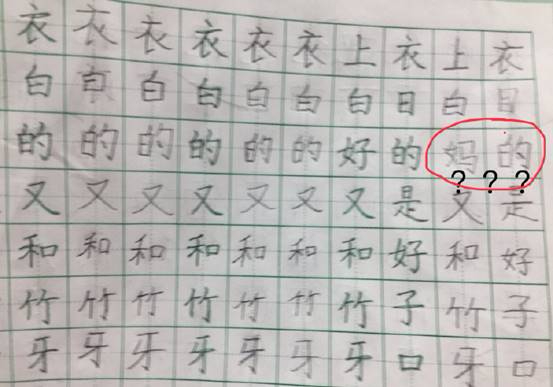 衣衣衣衣衣衣上衣上衣
白白白白白白白日白日
的的的的的的好的妈的
???
又又又又又又又是又是
和和和和和和和好和好
竹竹竹竹竹竹竹子竹子
牙牙牙牙牙牙牙口牙口